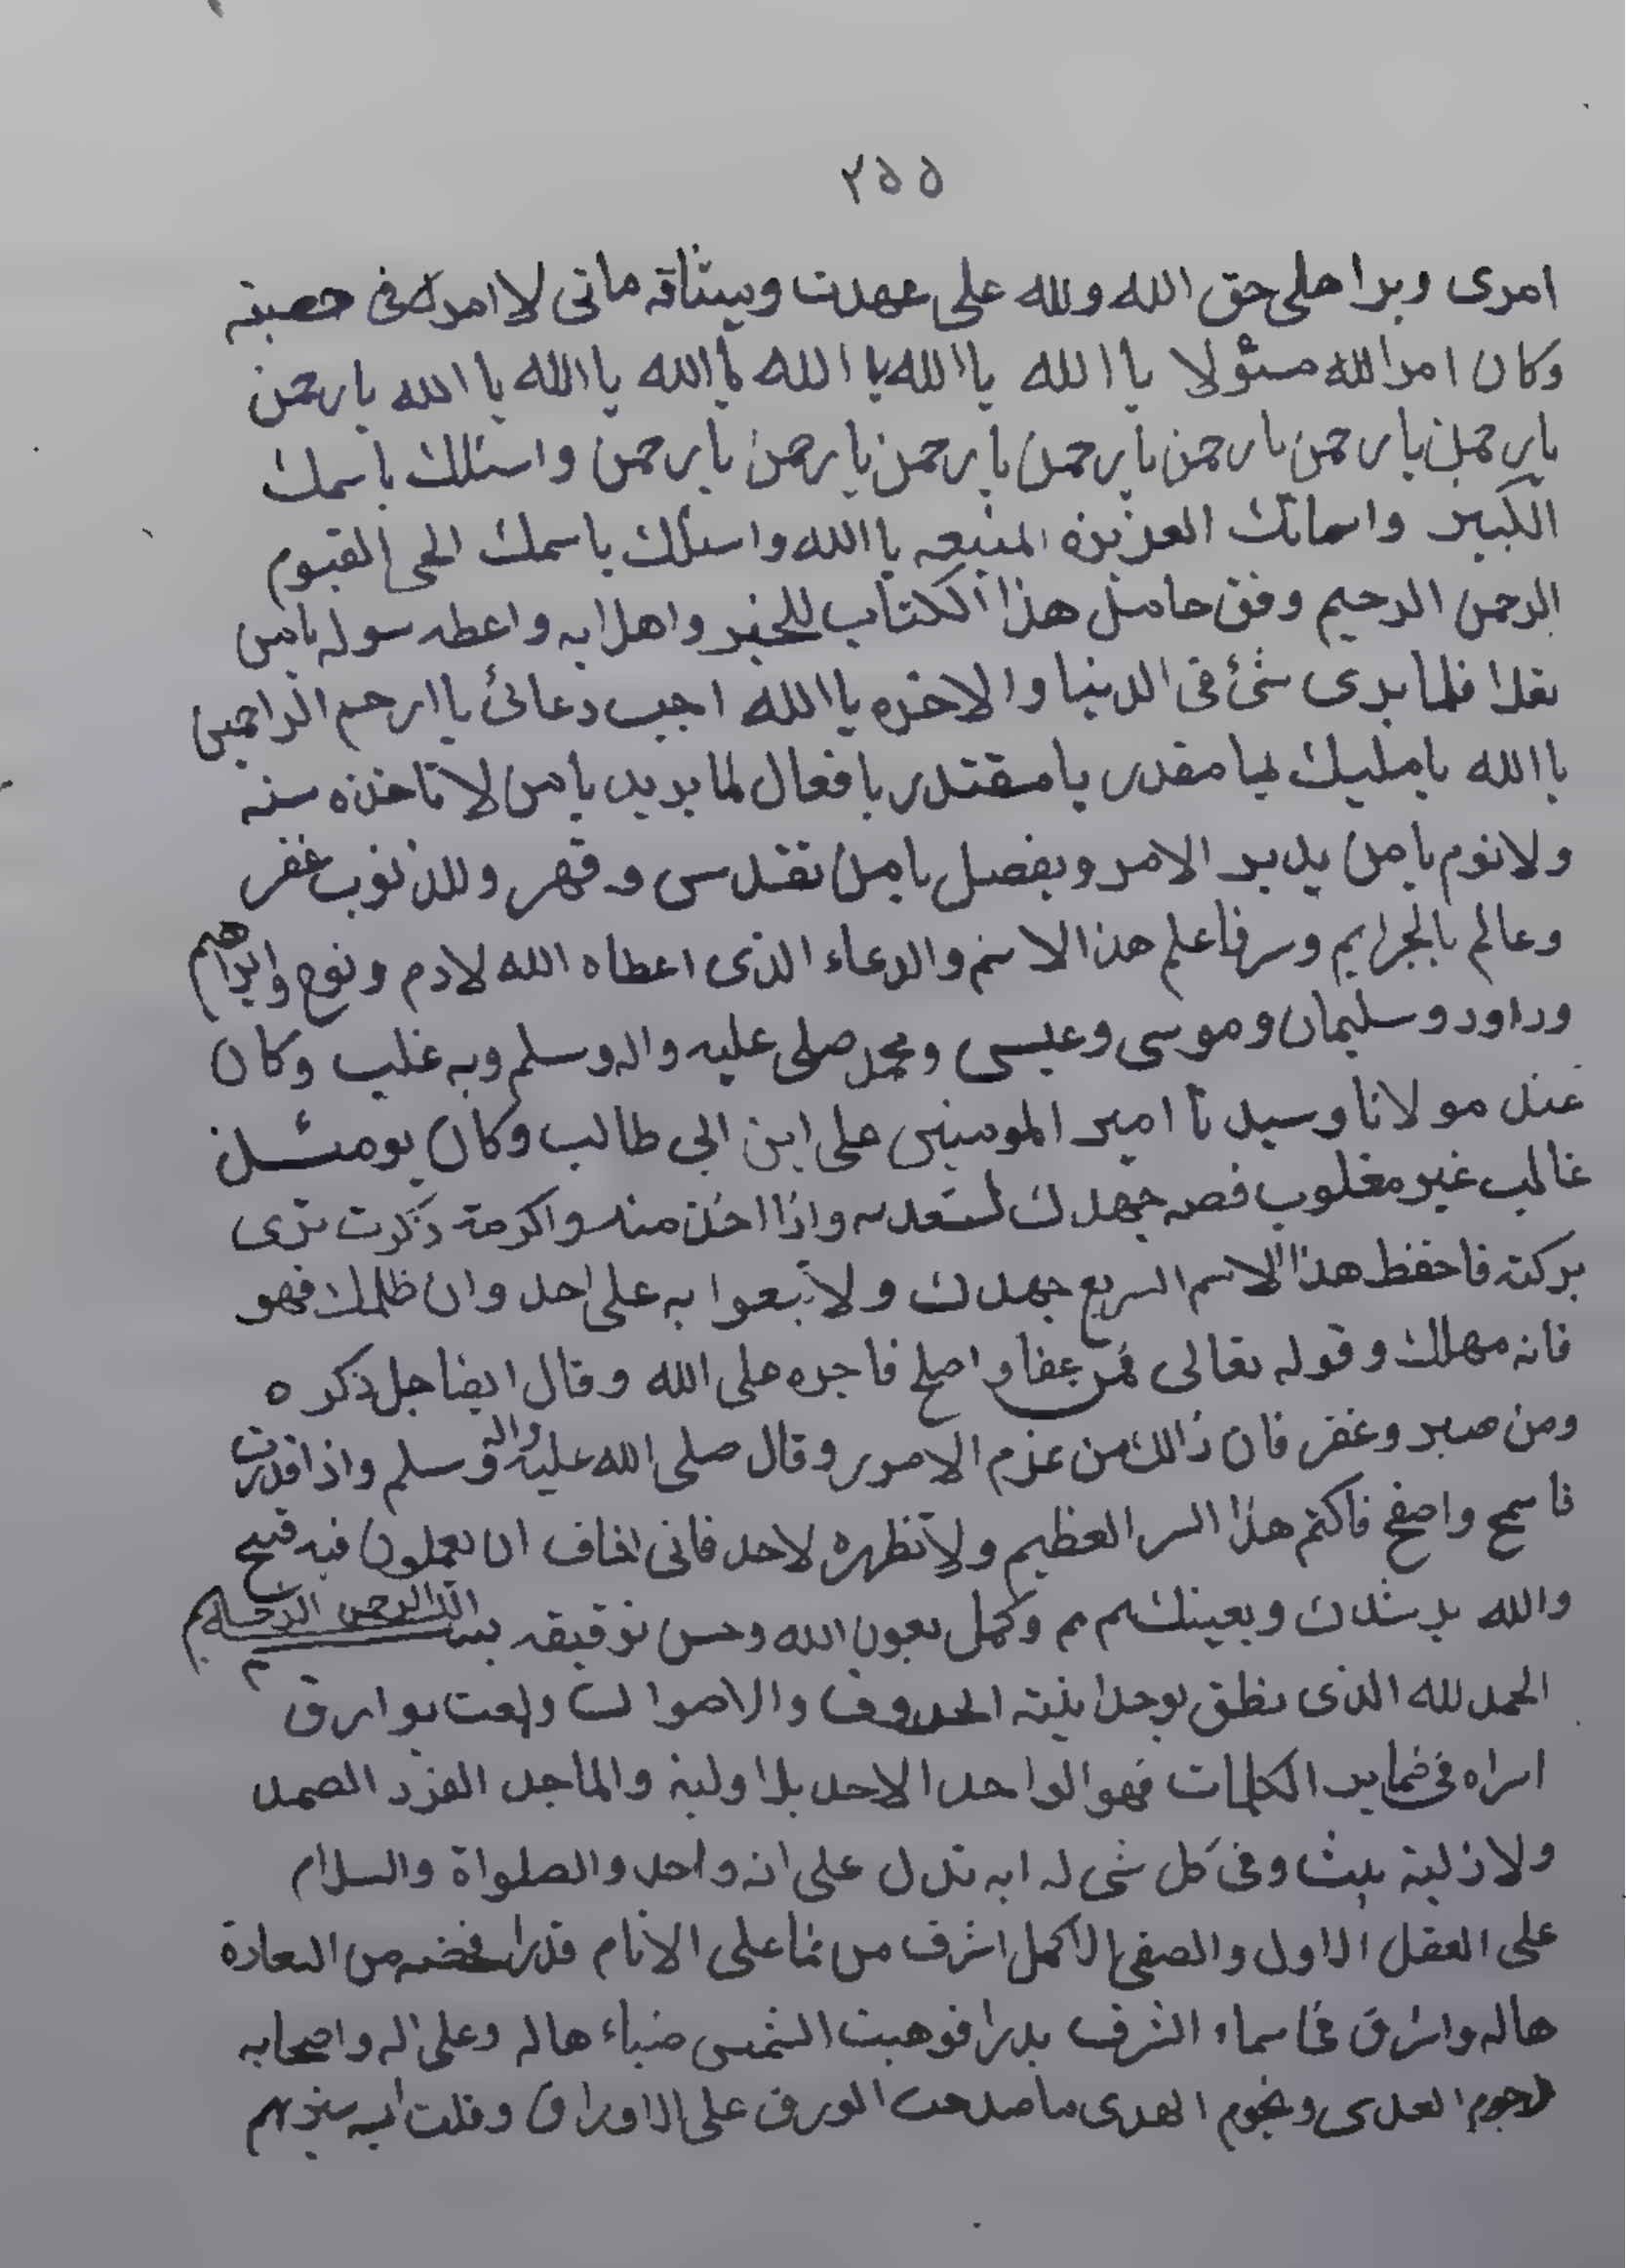 ٢٥٥
امرى وبرا على حق الله ولله على عهدت وميثاقه مانى لا امرك فى
وكان امر الله مسئولا يا الله يا الله يا الله يا الله يا الله يا الله يا رحمن
يا رحمن يا رحمن يا رحمن يا رحمن يا رحمن يا رحمن يا رحمن واسئلك باسمك
الكبير واسمائك العزيزه المنيعه يا الله واسئلك باسمك الحى القيوم
الرحمن الرحيم وفق حامل هذا الكتاب للخير واهدابه واعطه سوله يا من
فلما يرى شئ فى الدنيا والاخره يا الله اجيب دعائ يا ارحم الراحمين
يا الله يا مليك يا مقدر يا مقتدر يا فعال لما يريد يا من لا تاخذه سنه
ولا نوم يا من يدبر الامر ويفصل يا من تقدس وقهر وللذنوب غفر
وعالم بالجرايم وسر فاعلم هذا الاسم والدعاء الذى اعطاه الله لادم ونوح وابراهيم
وداود وسليمان وموسى وعيسى ومحمد صلى عليه واله وسلم وبه غلب وكان
عند مولانا وسيدنا امير المومنين على ابن ابى طالب وكان يومئذ
غالب غير مغلوب فصه جهدك واذا اخذ منه واكرمته ذكرت ترى
بركته فاحفظ هذا الاسم السريع جهدك ولا تبعوا به على احد وان ظلمك فهو
فانه مهلك وقوله تعالى فمن عفا واصلح فاجره على الله وقال ايضا جل ذكره
ومن صبر وغفر فان ذالك من عزم الامور وقال صلى الله عليه واله وسلم واذا قدرت
فاسمح واصفح فاكتم هذا السر العظيم ولا تظهره لاحد فانى اخاف ان يعملون فيه قبيح
والله يرشدك ويعينك مم وكمل بعون الله وحسن توفيقه بسم الله الرحمن الرحيم
الحمد لله الذى نطق بوحدانيته الحروف والاصوات ولمعت بوارق
اسراه فى ضماير الكلمات فهو الواحد الاحد بلا اولية والماجد الفرد الصمد
ولازلية بيث وفى كل شى له ايه تدل على انه واحد والصلواة والسلام
على العقل الاول والصفى الاكمل اشرف من نما على الانام قدرا من السعادة
هاله واشرق فى سماء الشرف بدرا فوهبت الشمس ضياء هاله وعلى اله واصحابه
رجوم العدى ونجوم الهدى ما صدحت الورق على الاوراق وتلت ايه سنريهم